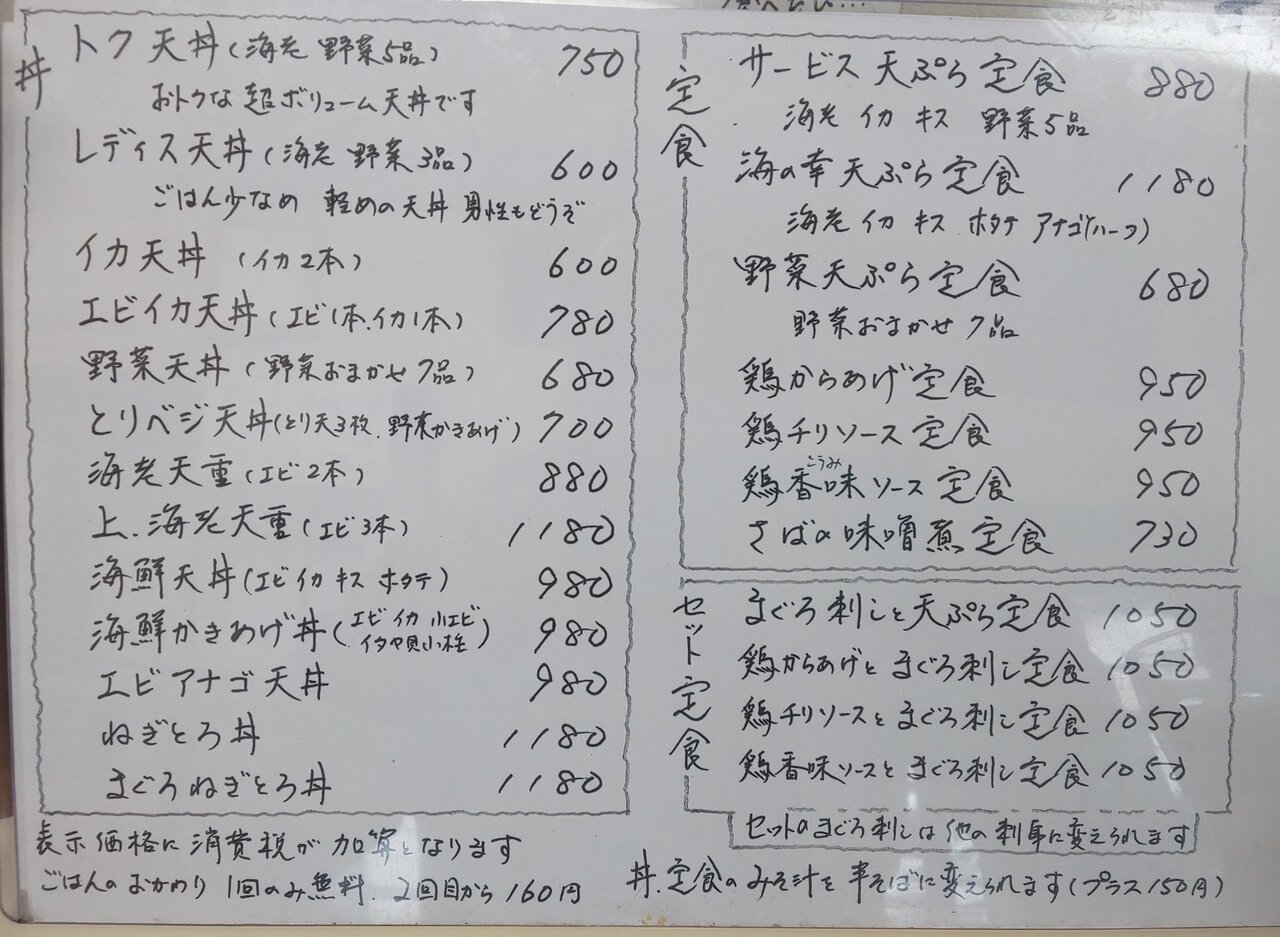 丼
トク天丼(海老 野菜5品) 750
おトクな超ボリューム天丼です
レディス天丼(海老 野菜3品) 600
ごはん少なめ 軽めの天丼 男性もどうぞ
イカ天丼 (イカ2本) 600
エビイカ天丼(エビ1本.イカ1本) 780
野菜天丼(野菜おまかせ7品) 680
とりベジ天丼(とり天3枚.野菜かきあげ) 700
海老天重(エビ2本) 880
上.海老天重(エビ3本) 1180
海鮮天丼(エビ イカ キス ホタテ) 980
海鮮かきあげ丼(エビ イカ 小エビ 980
イタヤ貝小柱)
エビアナゴ天丼 980
ねぎとろ丼 1180
まぐろねぎとろ丼 1180
定食
サービス天ぷら定食 880
海老 イカ キス 野菜5品
海の幸天ぷら定食 1180
海老 イカ キス ホタテ アナゴ(ハーフ)
野菜天ぷら定食 680
野菜おまかせ7品
鶏からあげ定食 950
鶏チリソース定食 950
こうみ
鶏香味ソース定食 950
さばの味噌煮定食 730
セット定食
まぐろ刺しと天ぷら定食 1050
鶏からあげとまぐろ刺し定食 1050
鶏チリソースとまぐろ刺し定食 1050
鶏香味ソースとまぐろ刺し定食 1050
セットのまぐろ刺しは他の刺身に変えられます
表示価格に消費税が加算となります
ごはんのおかわり 1回のみ無料.2回目から160円
丼.定食のみそ汁を半そばに変えられます(プラス150円)